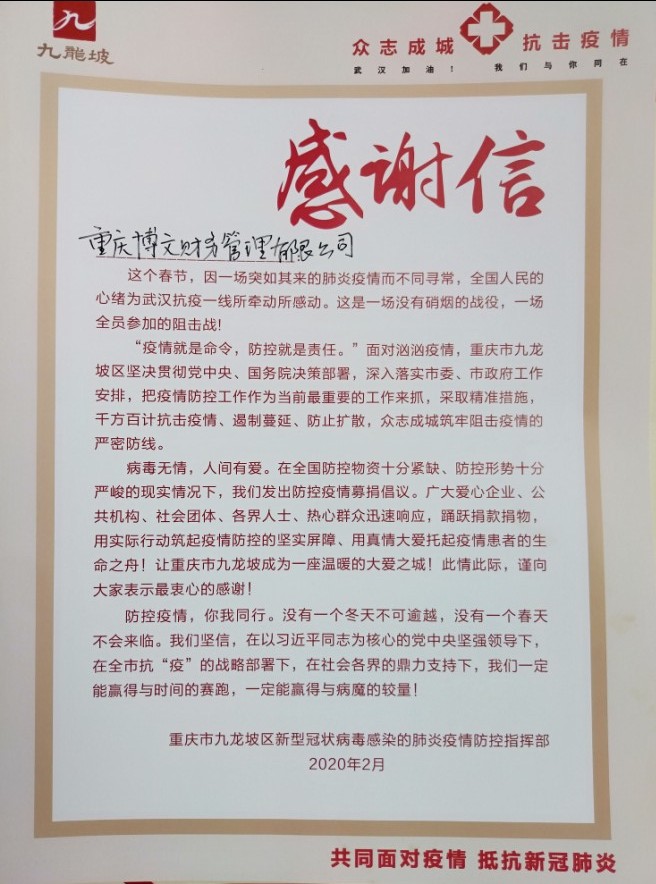 九龍坡
众志成城 抗击疫情
武汉加油！ 我们与你同在
感谢信
重庆博文财务管理有限公司
这个春节，因一场突如其来的肺炎疫情而不同寻常，全国人民的
心绪为武汉抗疫一线所牵动所感动。这是一场没有硝烟的战役，一场
全员参加的阻击战！
“疫情就是命令，防控就是责任。”面对汹汹疫情，重庆市九龙
坡区坚决贯彻党中央、国务院决策部署，深入落实市委、市政府工作
安排，把疫情防控工作作为当前最重要的工作来抓，采取精准措施，
千方百计抗击疫情、遏制蔓延、防止扩散，众志成城筑牢阻击疫情的
严密防线。
病毒无情，人间有爱。在全国防控物资十分紧缺、防控形势十分
严峻的现实情况下，我们发出防控疫情募捐倡议。广大爱心企业、公
共机构、社会团体、各界人士、热心群众迅速响应，踊跃捐款捐物，
用实际行动筑起疫情防控的坚实屏障、用真情大爱托起疫情患者的生
命之舟！让重庆市九龙坡成为一座温暖的大爱之城！此情此际，谨向
大家表示最衷心的感谢！
防控疫情，你我同行。没有一个冬天不可逾越，没有一个春天
不会来临。我们坚信，在以习近平同志为核心的党中央坚强领导下，
在全市抗“疫”的战略部署下，在社会各界的鼎力支持下，我们一定
能赢得与时间的赛跑，一定能赢得与病魔的较量！
重庆市九龙坡区新型冠状病毒感染的肺炎疫情防控指挥部
2020年2月
共同面对疫情 抵抗新冠肺炎